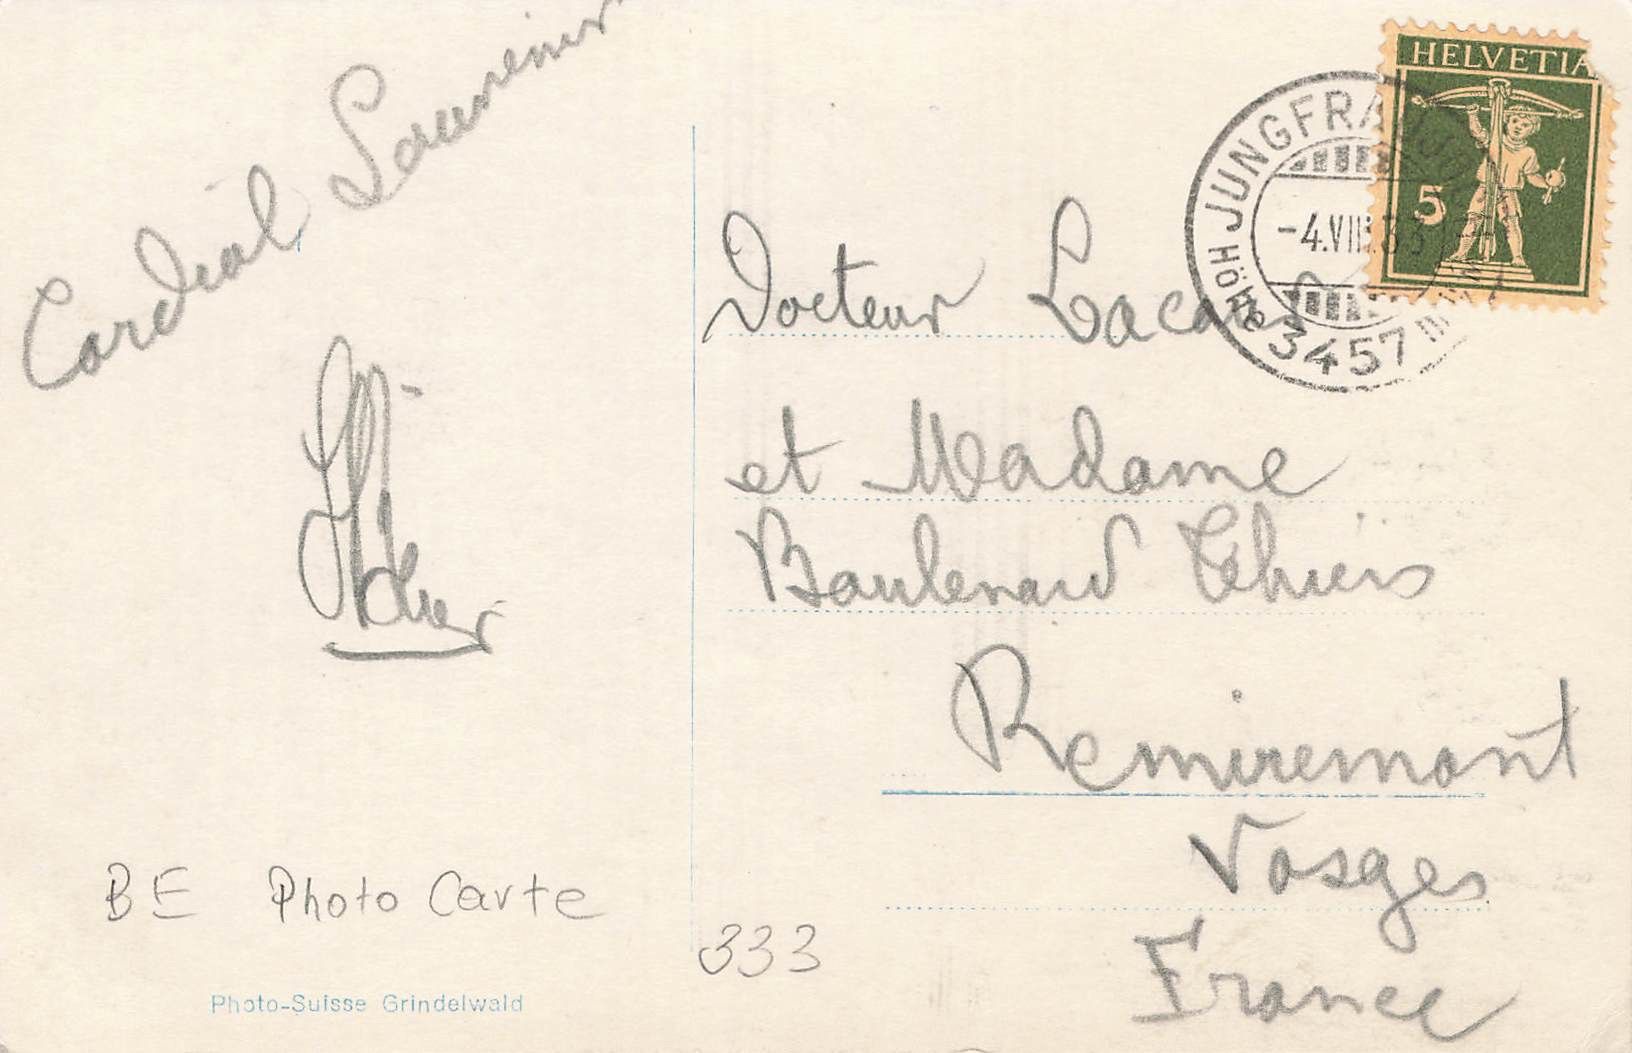 Cordial Souvenir
HELVETIA
5
JUNGFRAUJOCH
-4.VIII.33
Höhe 3457 m
Docteur
et Madame
Boulevard Thiers
Remiremont
Vosges
France
BE Photo Carte
333
Photo-Suisse Grindelwald